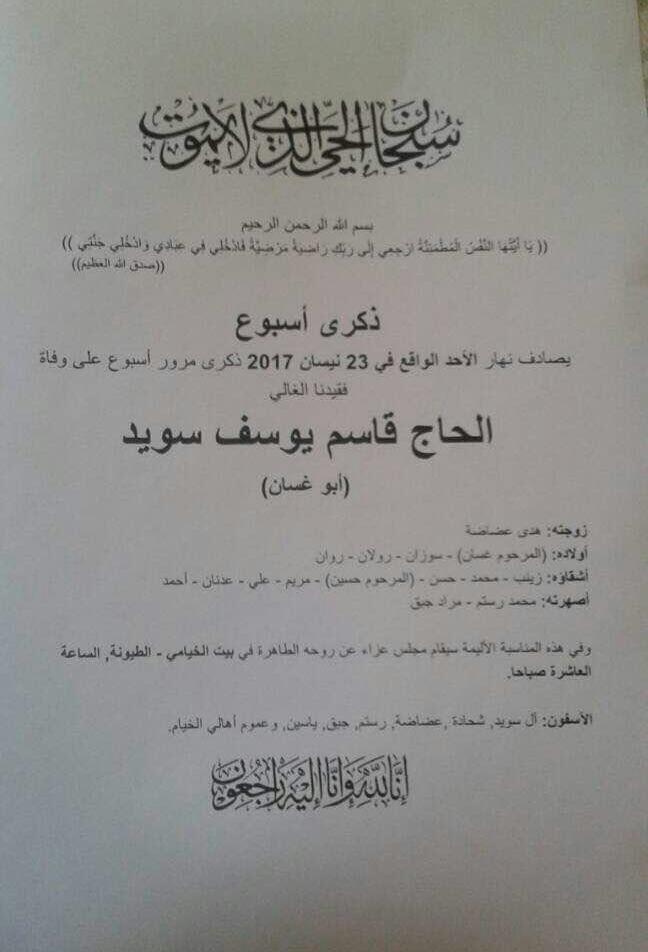 سبحان الحي الذي لا يموت
بسم الله الرحمن الرحيم
(( يَا أَيَّتُهَا النَّفْسُ الْمُطْمَئِنَّةُ ارْجِعِي إِلَى رَبِّكِ رَاضِيَةً مَرْضِيَّةً فَادْخُلِي فِي عِبَادِي وَادْخُلِي جَنَّتِي ))
((صدق الله العظيم))
ذكرى أسبوع
يصادف نهار الأحد الواقع في 23 نيسان 2017 ذكرى مرور أسبوع على وفاة
فقيدنا الغالي
الحاج قاسم يوسف سويد
(أبو غسان)
زوجته: هدى عضاضة
أولاده: (المرحوم غسان) - سوزان - رولان - روان
أشقاؤه: زينب - محمد - حسن - (المرحوم حسين) - مريم - علي - عدنان - أحمد
أصهرته: محمد رستم - مراد جبق
وفي هذه المناسبة الأليمة سيقام مجلس عزاء عن روحه الطاهرة في بيت الخيامي - الطيونة, الساعة
العاشرة صباحا.
الآسفون: آل سويد, شحادة ,عضاضة, رستم, جبق, ياسين, وعموم أهالي الخيام.
إنا لله وإنا إليه راجعون